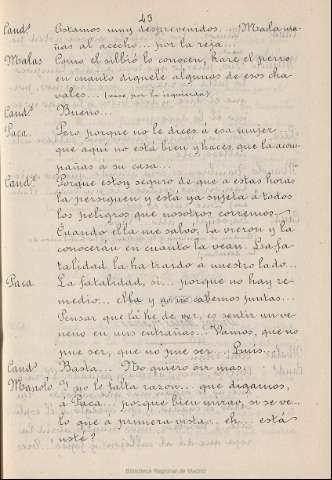 43
Cand.ˢ Estamos muy desprevenidos. Mala ma-
ñas al acecho... por la reja...
Malas Como el silbío lo conocen, haré el perro
en cuanto diquele algunos de esos cha-
vales... (vase por la izquierda)
Cand.ˢ Bueno...
Paca. Pero porque no le dices á esa mujer
que aquí no está bien y haces que la acom-
pañas á su casa...
Cand.ˢ Porque estoy seguro de que a estas horas
la persiguen y está ya sujeta á todos
los peligros que nosotros corremos.
Cuando ella me salvó, la vieron y la
conocerán en cuanto la vean. La fa-
talidad la ha traido á nuestro lado...
Paca La fatalidad, sí... porque no hay re-
medio... ella y yo no cabemos juntas...
Pensar que la he de ver, es sentir un ve-
neno en mis entrañas... Vamos, que no
pue ser, que no pue ser... Luis.
Cand.ˢ Basta... No quiero oir mas;
Manolo Y no le falta razon... que digamos,
á Paca... porque bien mirao, si se ve...
lo que a primera vista... eh... está
usté?
Biblioteca Regional de Madrid